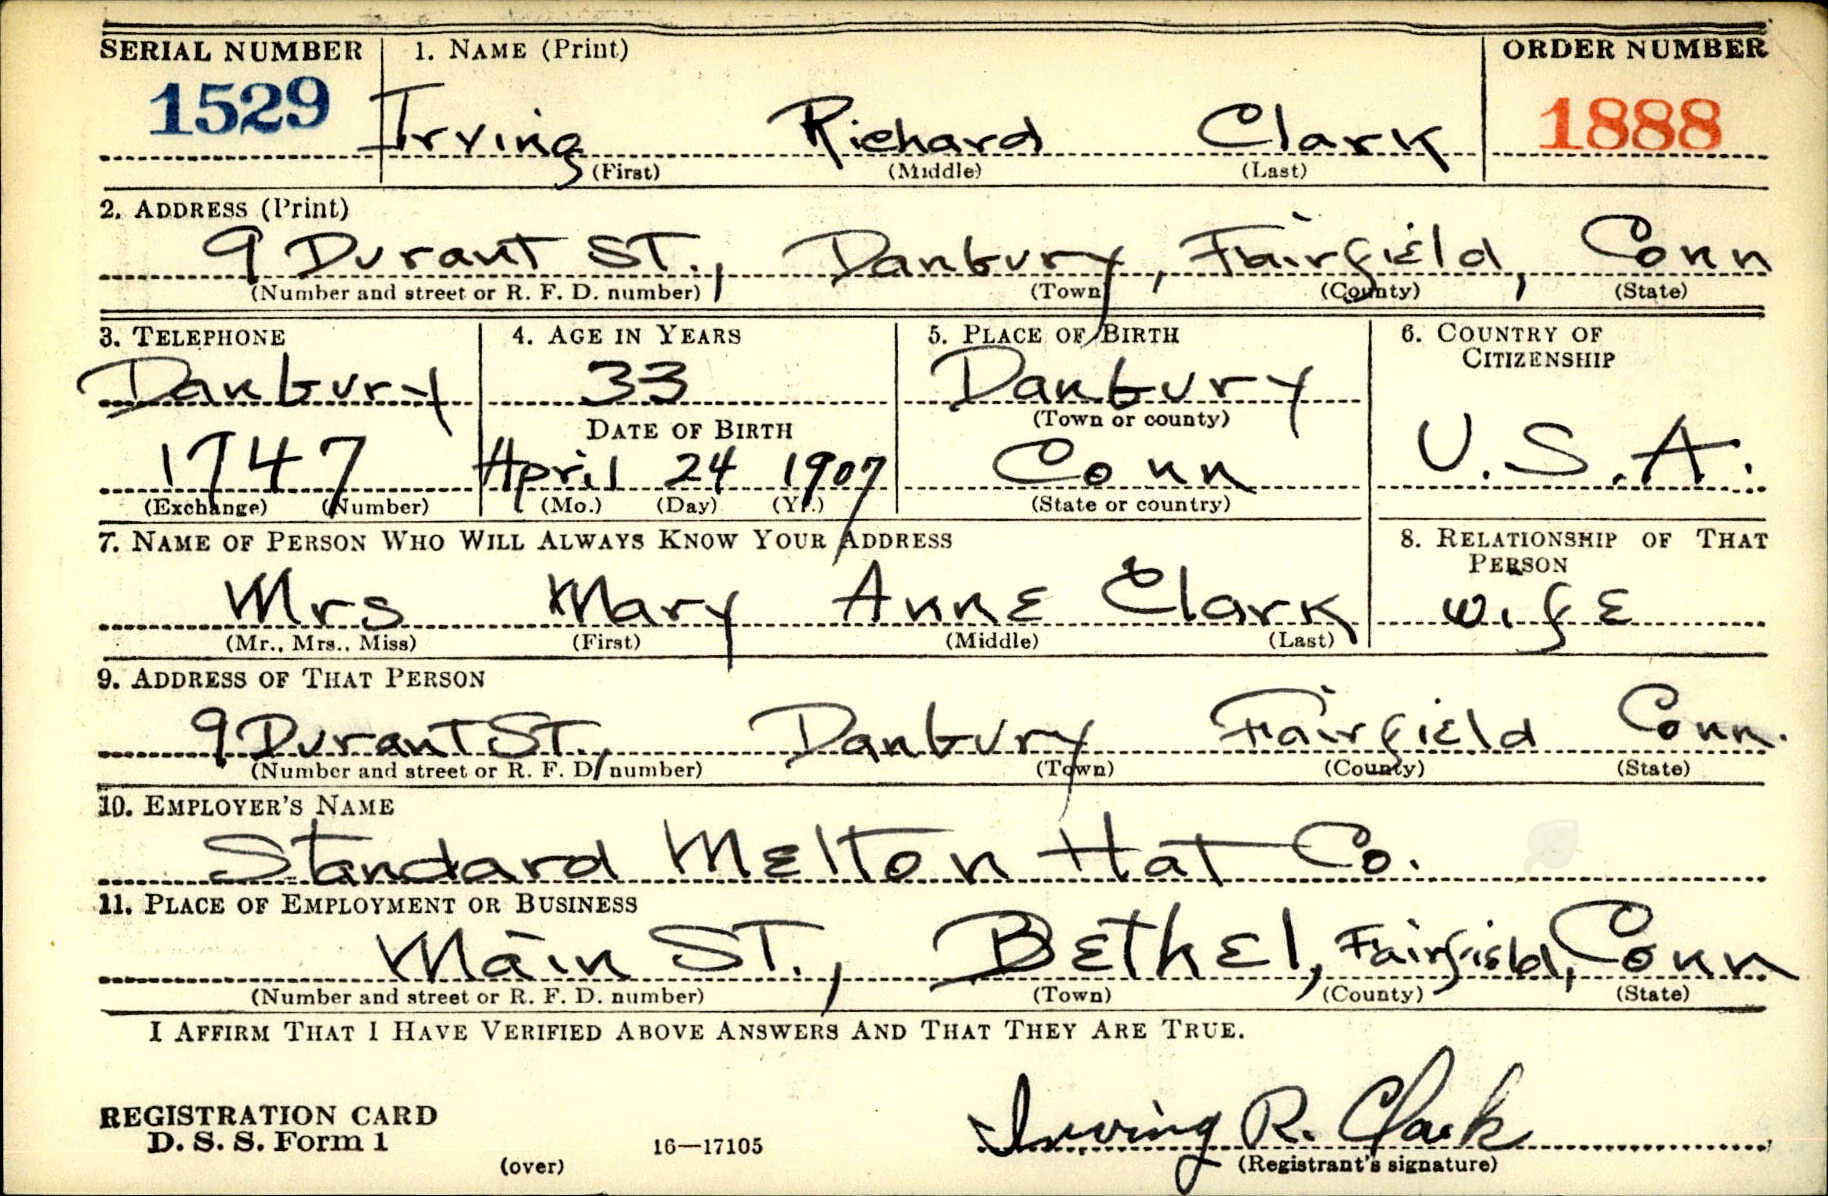 SERIAL NUMBER 1. NAME (Print) ORDER NUMBER
1529 Irving Richard Clark 1888
(First) (Middle) (Last)
2. ADDRESS (Print)
9 Durant ST., Danbury, Fairfield, Conn
(Number and street or R. F. D. number) (Town) (County) (State)
3. TELEPHONE 4. AGE IN YEARS 5. PLACE OF BIRTH 6. COUNTRY OF CITIZENSHIP
Danbury 33 Danbury
DATE OF BIRTH (Town or county)
1747 April 24 1907 Conn U.S.A.
(Exchange) (Number) (Mo.) (Day) (Yr.) (State or country)
7. NAME OF PERSON WHO WILL ALWAYS KNOW YOUR ADDRESS 8. RELATIONSHIP OF THAT PERSON
Mrs Mary Anne Clark wife
(Mr., Mrs., Miss) (First) (Middle) (Last)
9. ADDRESS OF THAT PERSON
9 Durant ST., Danbury Fairfield Conn.
(Number and street or R. F. D. number) (Town) (County) (State)
10. EMPLOYER'S NAME
Standard Melton Hat Co.
11. PLACE OF EMPLOYMENT OR BUSINESS
Main ST., Bethel, Fairfield, Conn
(Number and street or R. F. D. number) (Town) (County) (State)
I AFFIRM THAT I HAVE VERIFIED ABOVE ANSWERS AND THAT THEY ARE TRUE.
REGISTRATION CARD
D. S. S. Form 1 16—17105 Irving R. Clark
(over) (Registrant's signature)